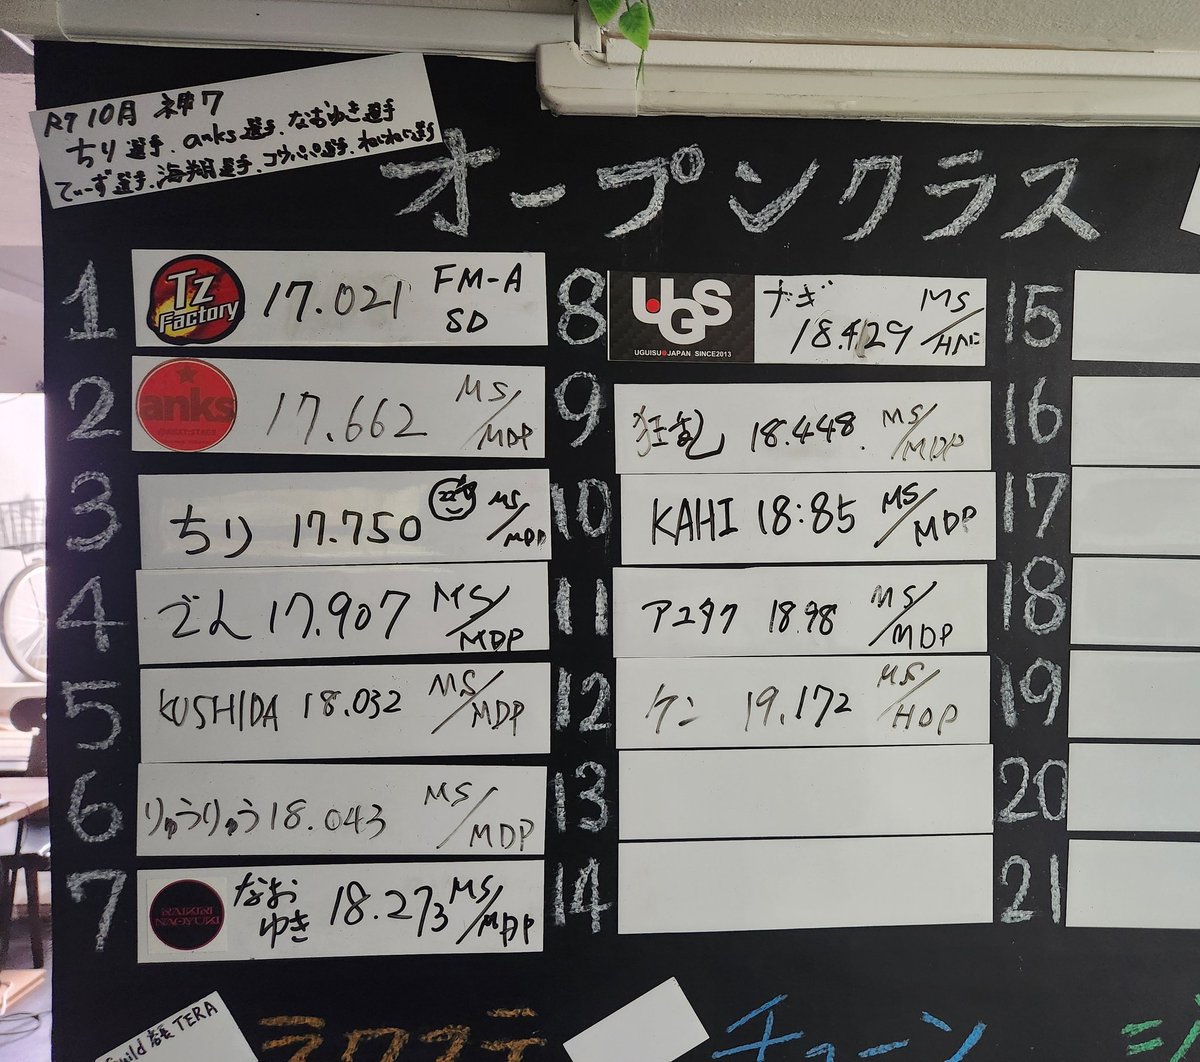 R7 10月 神7
ちり選手、anks選手、なおゆき選手
てぃーず選手、海翔選手、コウパパ選手、
オープンクラス
1 Tz Factory 17.021 FM-A SD
2 anks 17.662 MS/MDP
3 ちり 17.750 MS/MDP
4 でん 17.907 MS/MDP
5 KUSHIDA 18.032 MS/MDP
6 りゅうりゅう 18.043 MS/MDP
7 なおゆき 18.273 MS/MDP
8 UGS UGUISU JAPAN SINCE2013 ナギ 18.429 MS/
9 狂乱 18.448. MS/MDP
10 KAHI 18:85 MS/MDP
11 アユタク 18.98 MS/MDP
12 ケン 19.172 MS/HDP
13
14
15
16
17
18
19
20
21
TERA
チューン